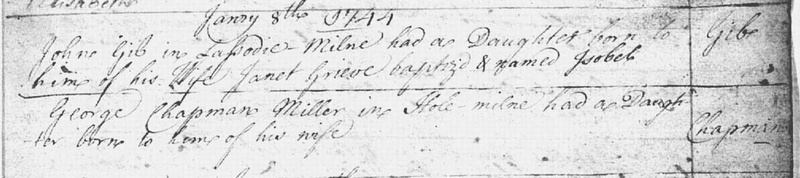 Janry 8th 1744
John Gib in Lassodie Milne had a Daughter born to
him of his Wife Janet Grieve baptizd & named Isobel
Gib
George Chapman Miller in Hole-milne had a Daugh
ter born to him of his wife
Chapman